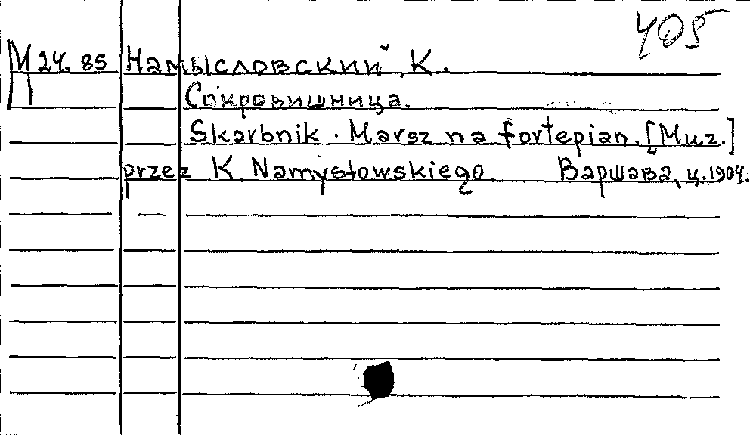 405
М 24.85 Намысловский, К.
Сокровишница.
Skarbnik. Marsz na fortepian. [Muz.]
przez K Namysłowskiego. Варшава, ц.1904.